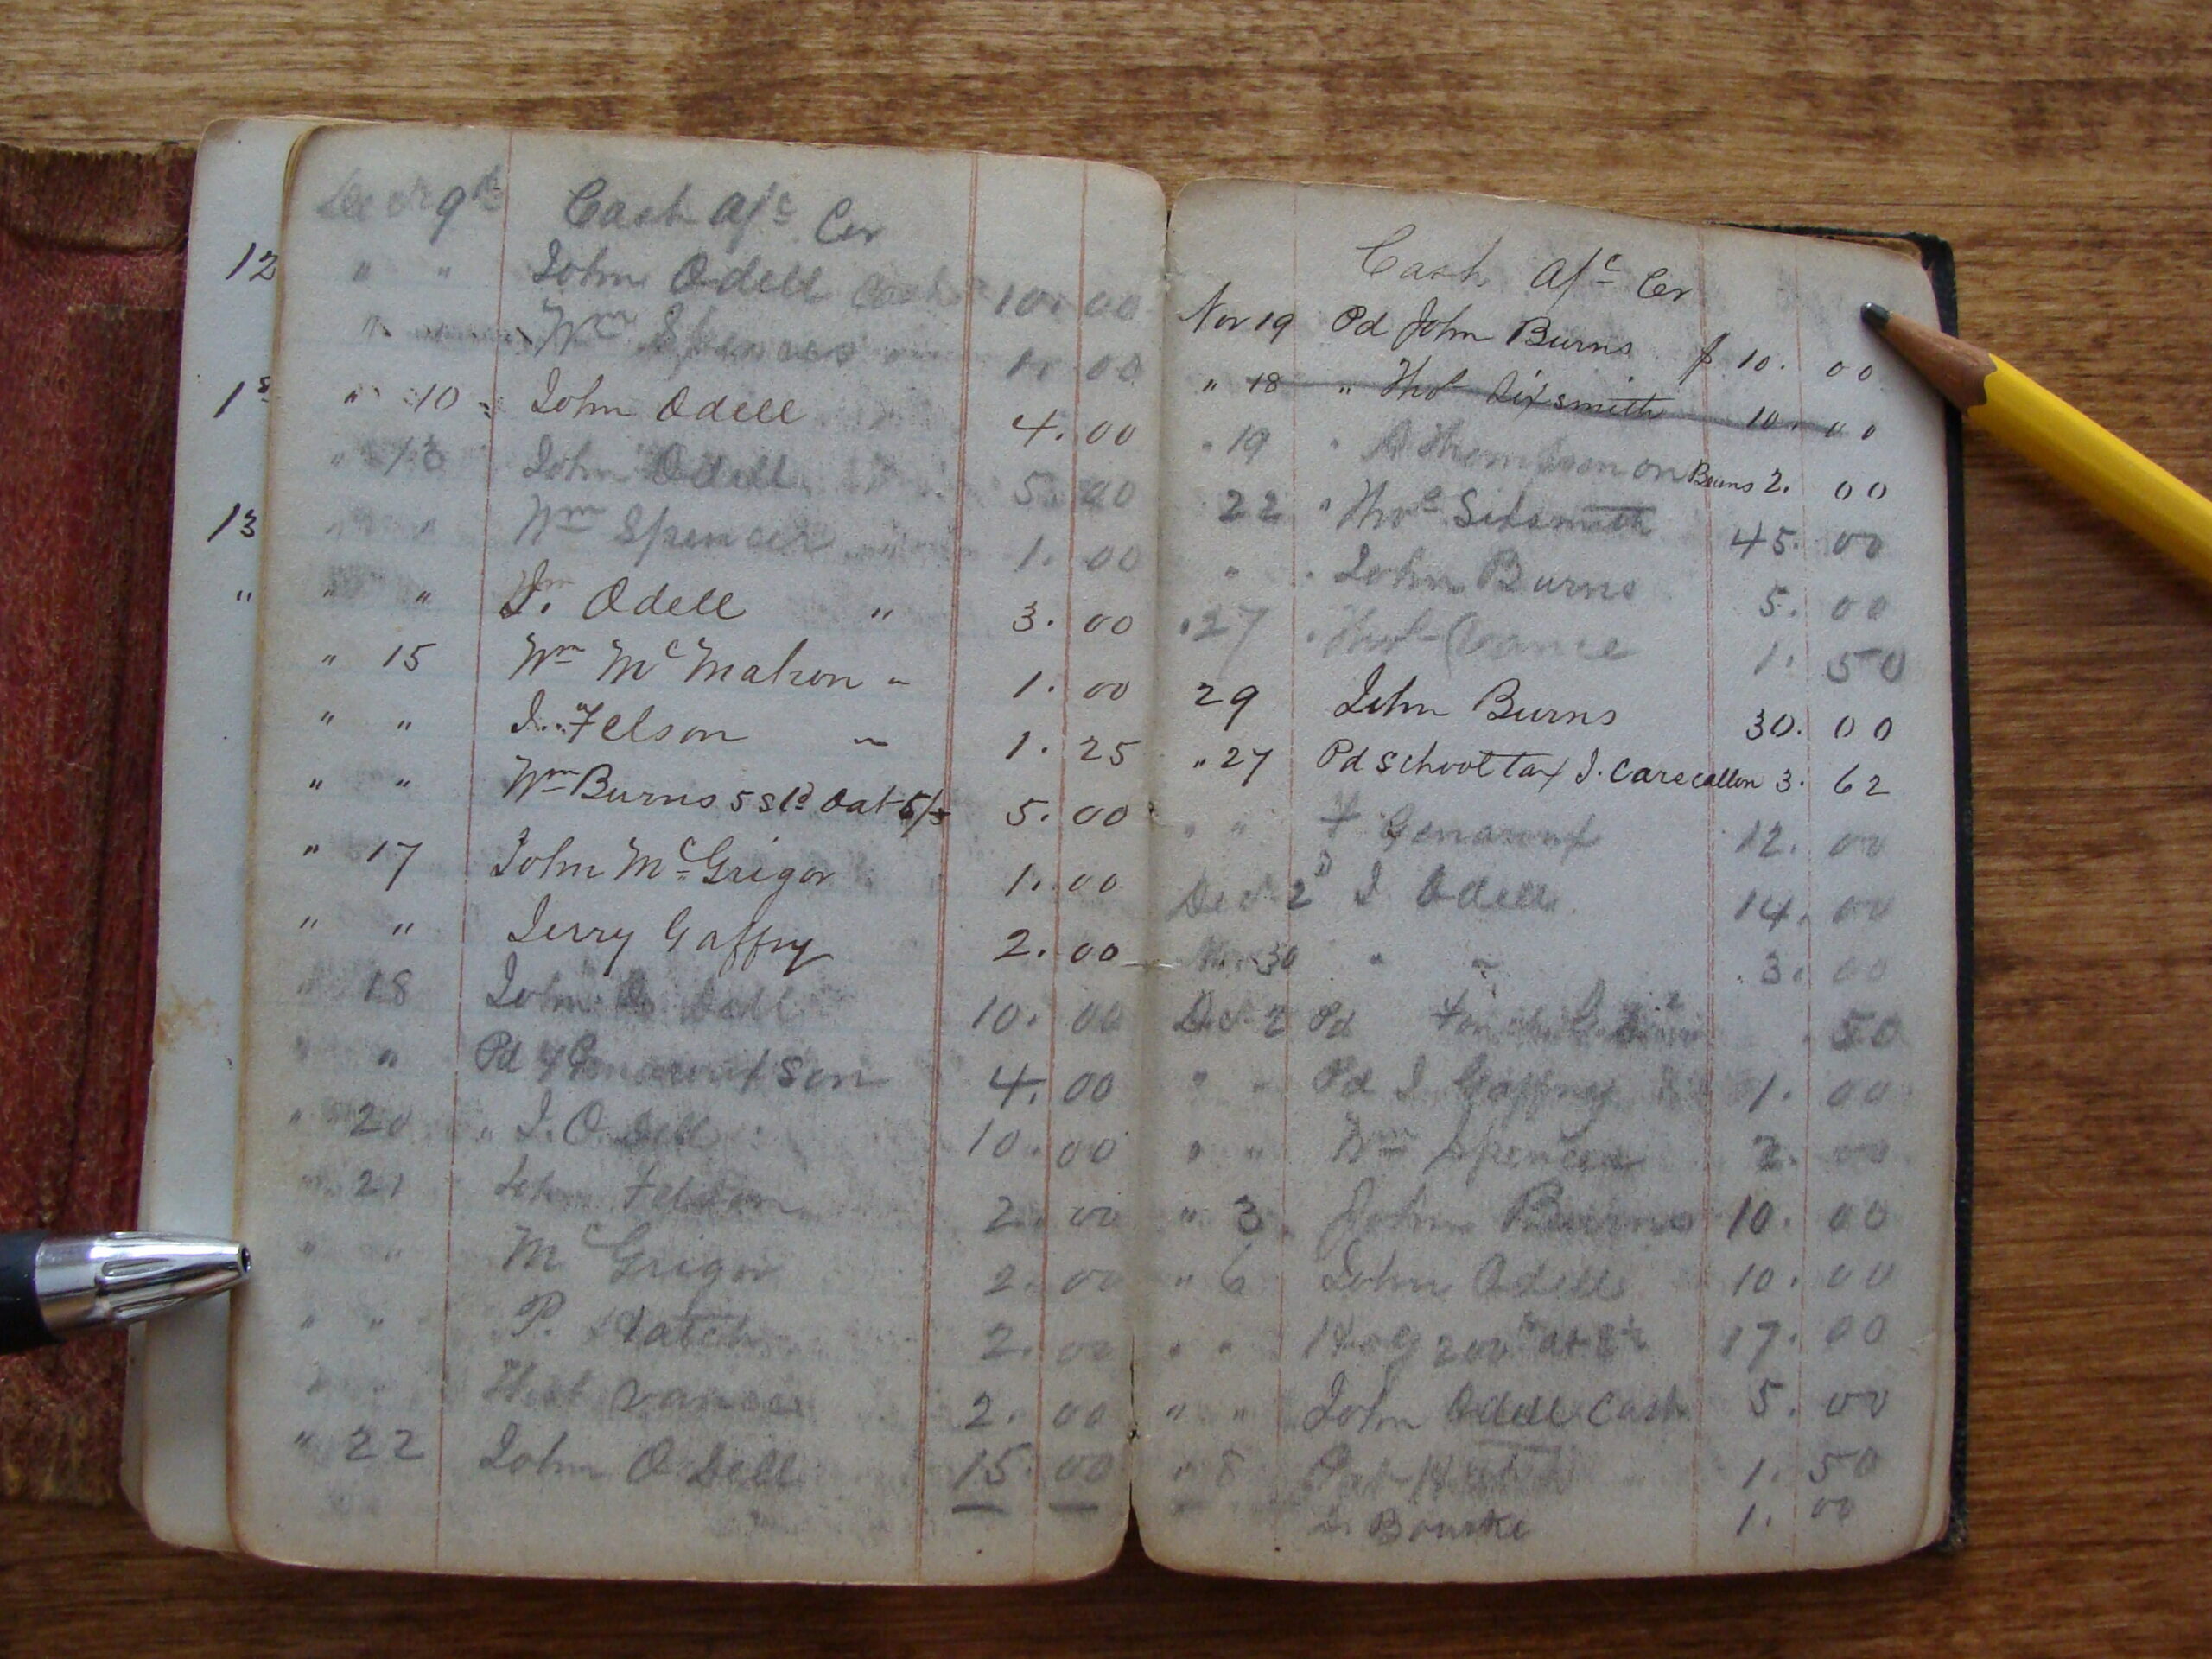 12
1st
13
"
Decr 9th Cash a/c Cr
" " John Odell Cash 10. 00
" Wm Spencer 1. 00
" 10 John Odell 4. 00
" 13 John Odell 5. 00
" " Wm Spencer 1. 00
" " Jn. Odell " 3. 00
" 15 Wm McMahon " 1. 00
" " J. Felson " 1. 25
" " Wm Burns 5 Sld Oat 5. 00
" 17 John McGrigor 1. 00
" " Jerry Gaffry 2. 00
" 18 John Odell 10. 00
" " Pd F Son 4. 00
" 20 " J. Odell 10. 00
" 21 John Felson 2. 00
" " McGrigor 2. 00
" " P. Hatch 2. 00
" " Thos Vance 2. 00
" 22 John Odell 15. 00
Cash a/c Cr
Nov 19 Pd John Burns $ 10. 00
" 18 " Thos Sixsmith 10. 00
" 19 " Thompson on Burns 2. 00
22 " Thos Sixsmith 45. 00
" " John Burns 5. 00
" 27 " Thos Vance 1. 50
29 John Burns 30. 00
" 27 Pd School tax J. Carscallen 3. 62
" " F 12. 00
Decr 2d J Odell 14. 00
Nov 30 " " 3. 00
Decr 2 Pd . 50
" " Pd J Gaffney 1. 00
" " Wm Spencer 2. 00
" 3 John Burns 10. 00
" 6 John Odell 10. 00
" " Hog 200 at 17. 00
" " John Odell Cash 5. 00
" 8 Pat Hatch 1. 50
" Bourke 1. 00